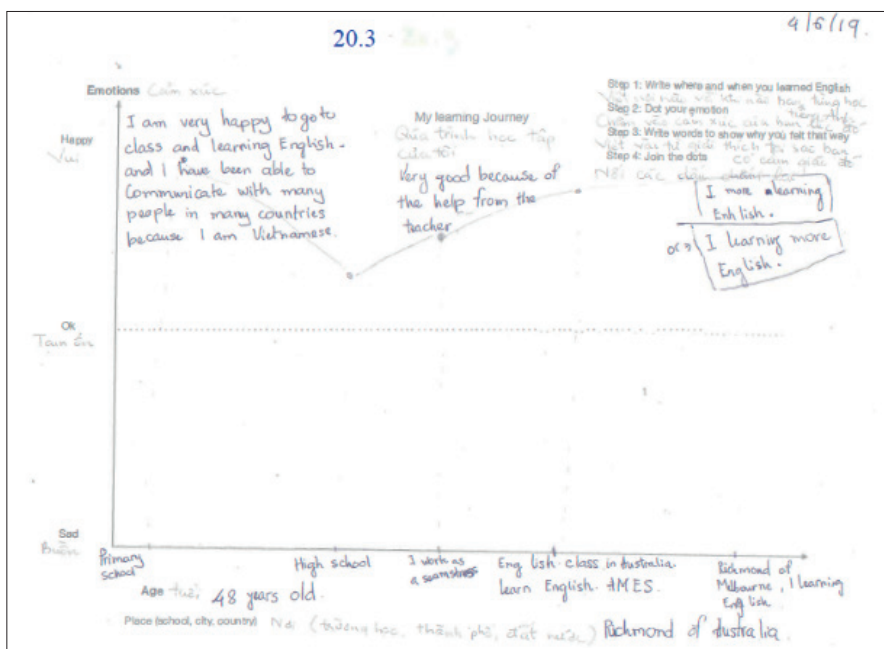 4/6/19.
20.3
Emotions Cảm xúc
Happy
Vui
I am very happy to go to
class and learning English.
and I have been able to
Communicate with many
people in many countries
because I am Vietnamese.
My learning Journey
Qúa trình học tập
của tôi
Very good because of
the help from the
teacher
Step 1: Write where and when you learned English
Step 2: Dot your emotion
Step 3: Write words to show why you felt that way
Step 4: Join the dots
I more learning
Enhlish.
I learning more
English.
Ok
Sad
Buồn
Primary
school
High school
I work as
a seamstress
Eng lish class in australia
learn English. AMES.
Richmond of
Melbourne, I learning
English.
Age tuổi 48 years old.
Place (school, city, country) Nơi (trường học, thành phố, đất nước) Richmond of Australia.